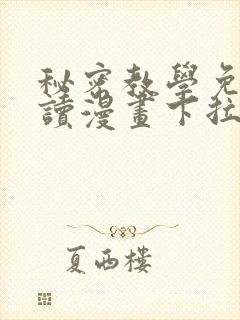 秘密教學免
讀漫畫下拉
夏西樓